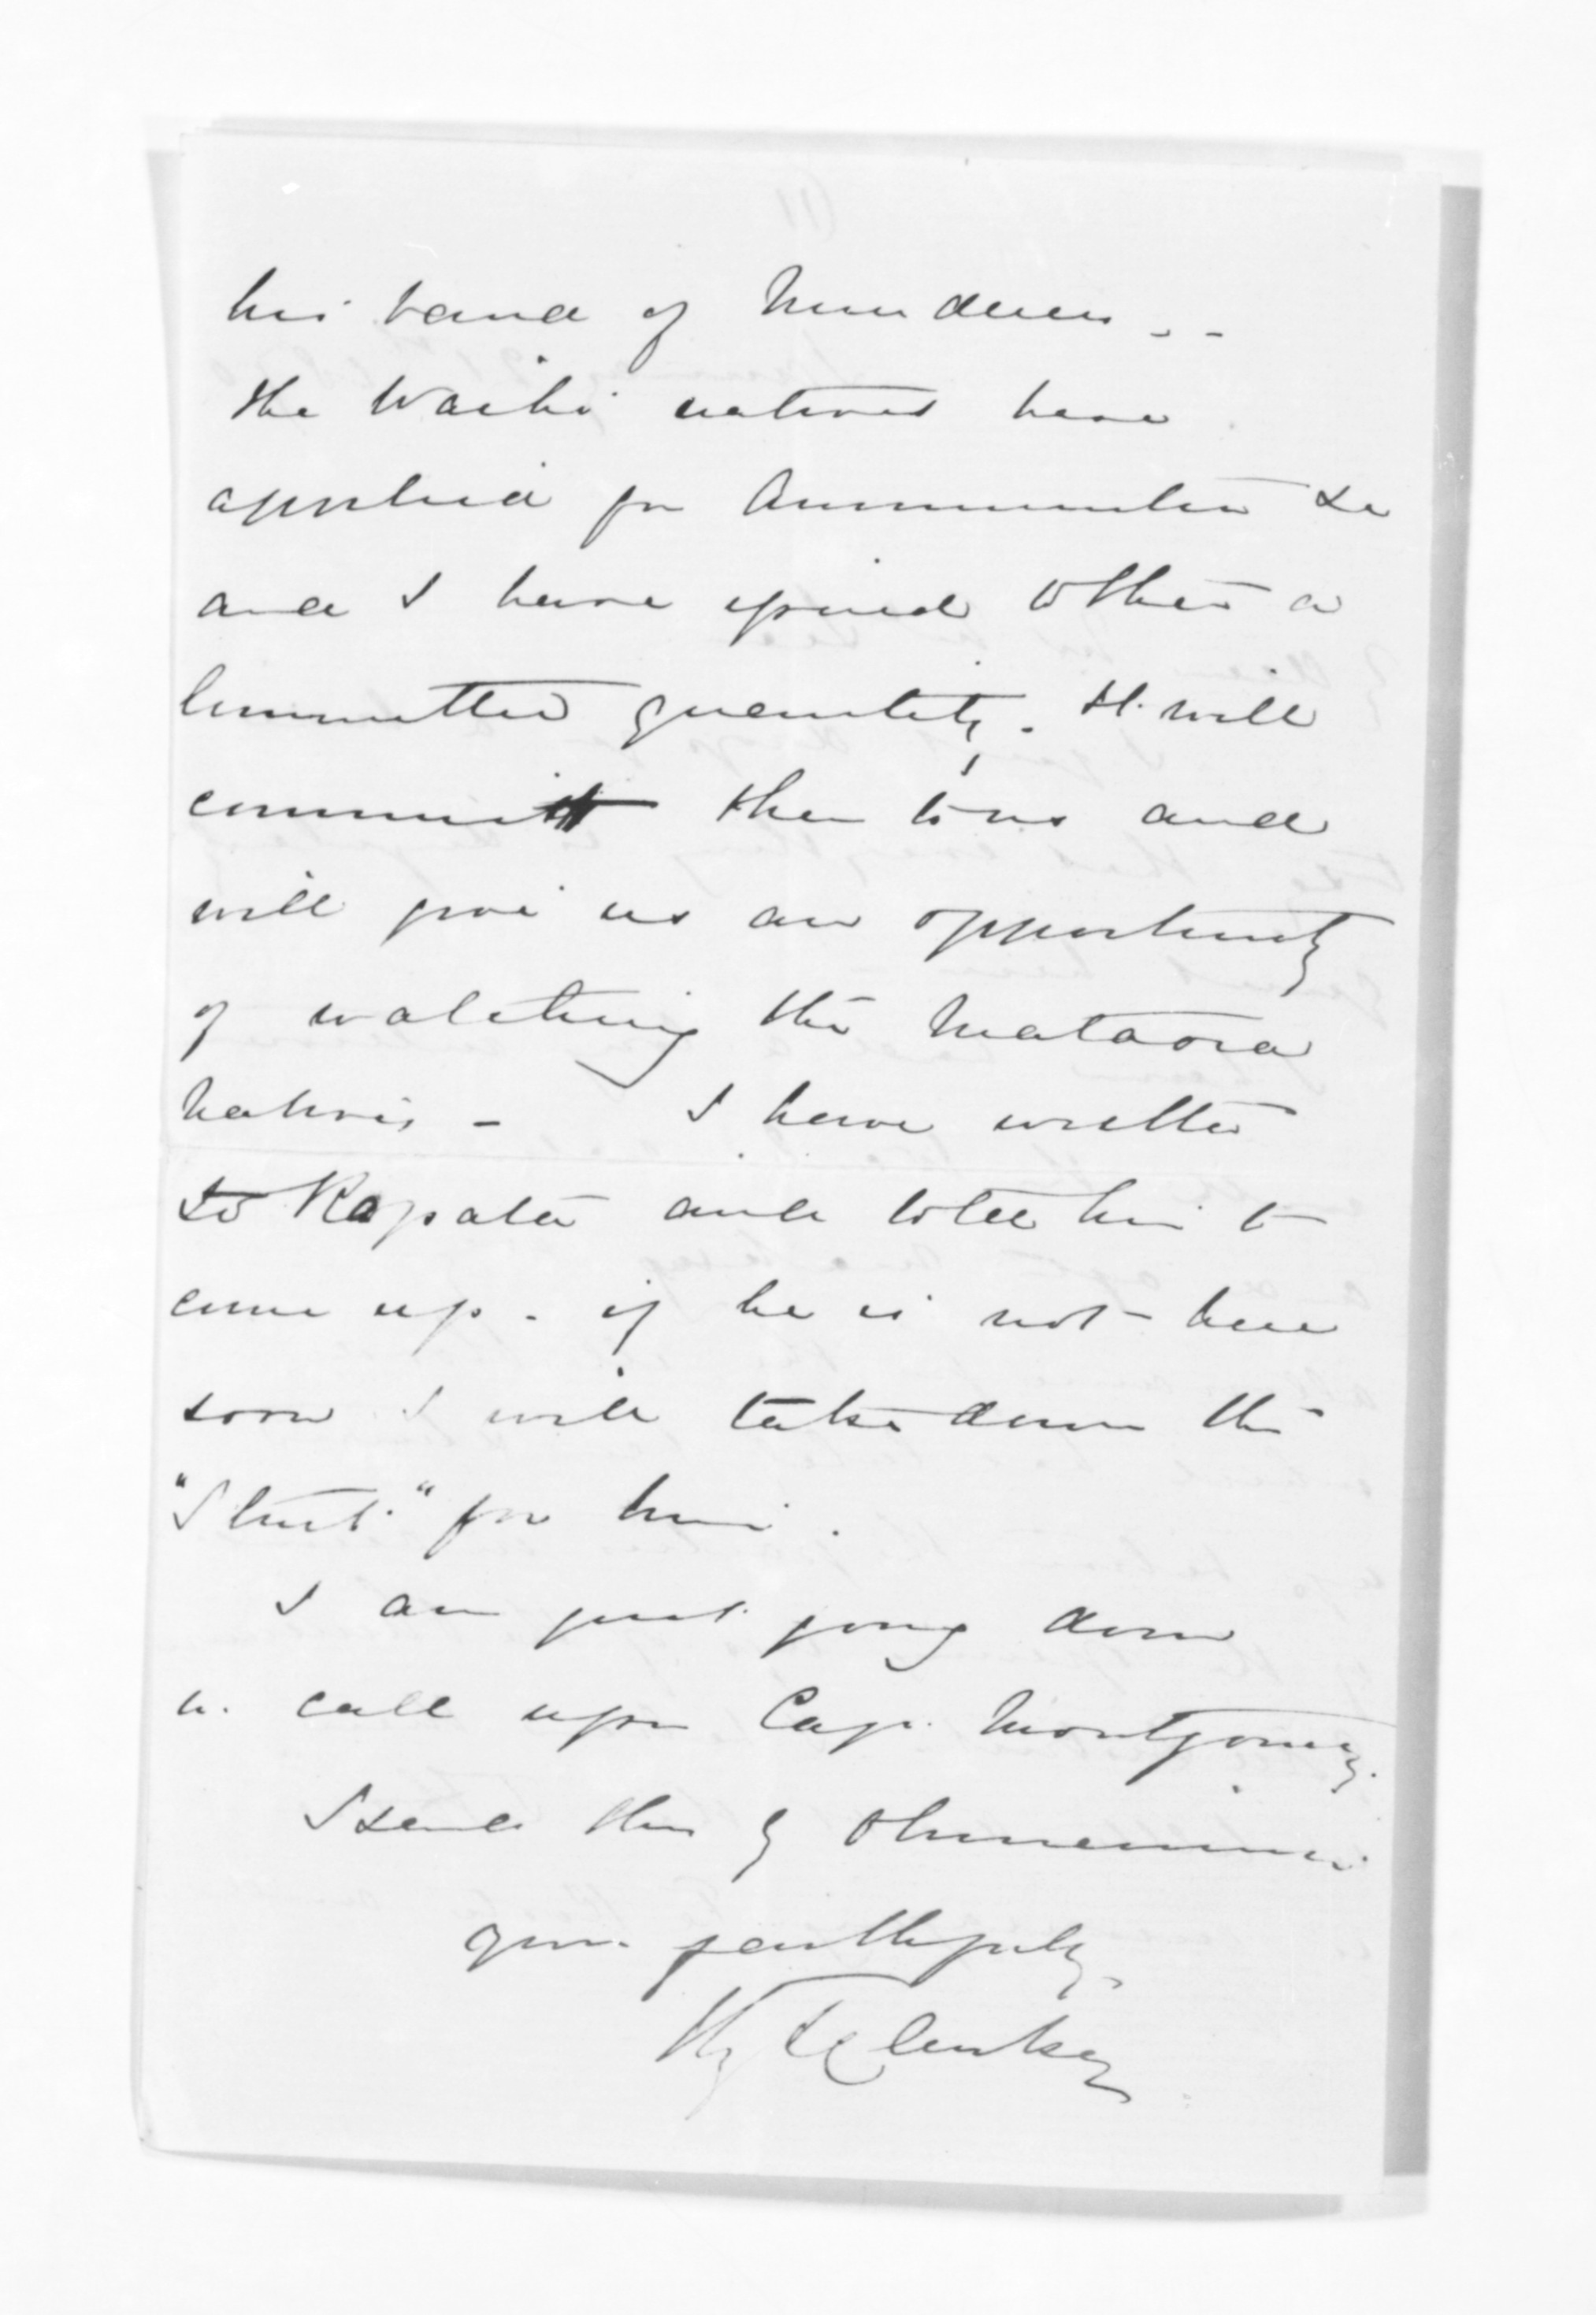 his band of Murderers - -
the Waihi natives have
applied for Ammunition &c
and I have given to them a
limmitted quantity. It will
commit them to us and
will give us an opportunity
of watching the Mataora
Natives - I have written
to Ropata and told him to
come up - if he is not here
soon I will take down the
"Sturt" for him.
I am just going down
to call upon Cap. Montgomery.
I send this by Ohinemuri
yours faithfully
Hy T Clarke